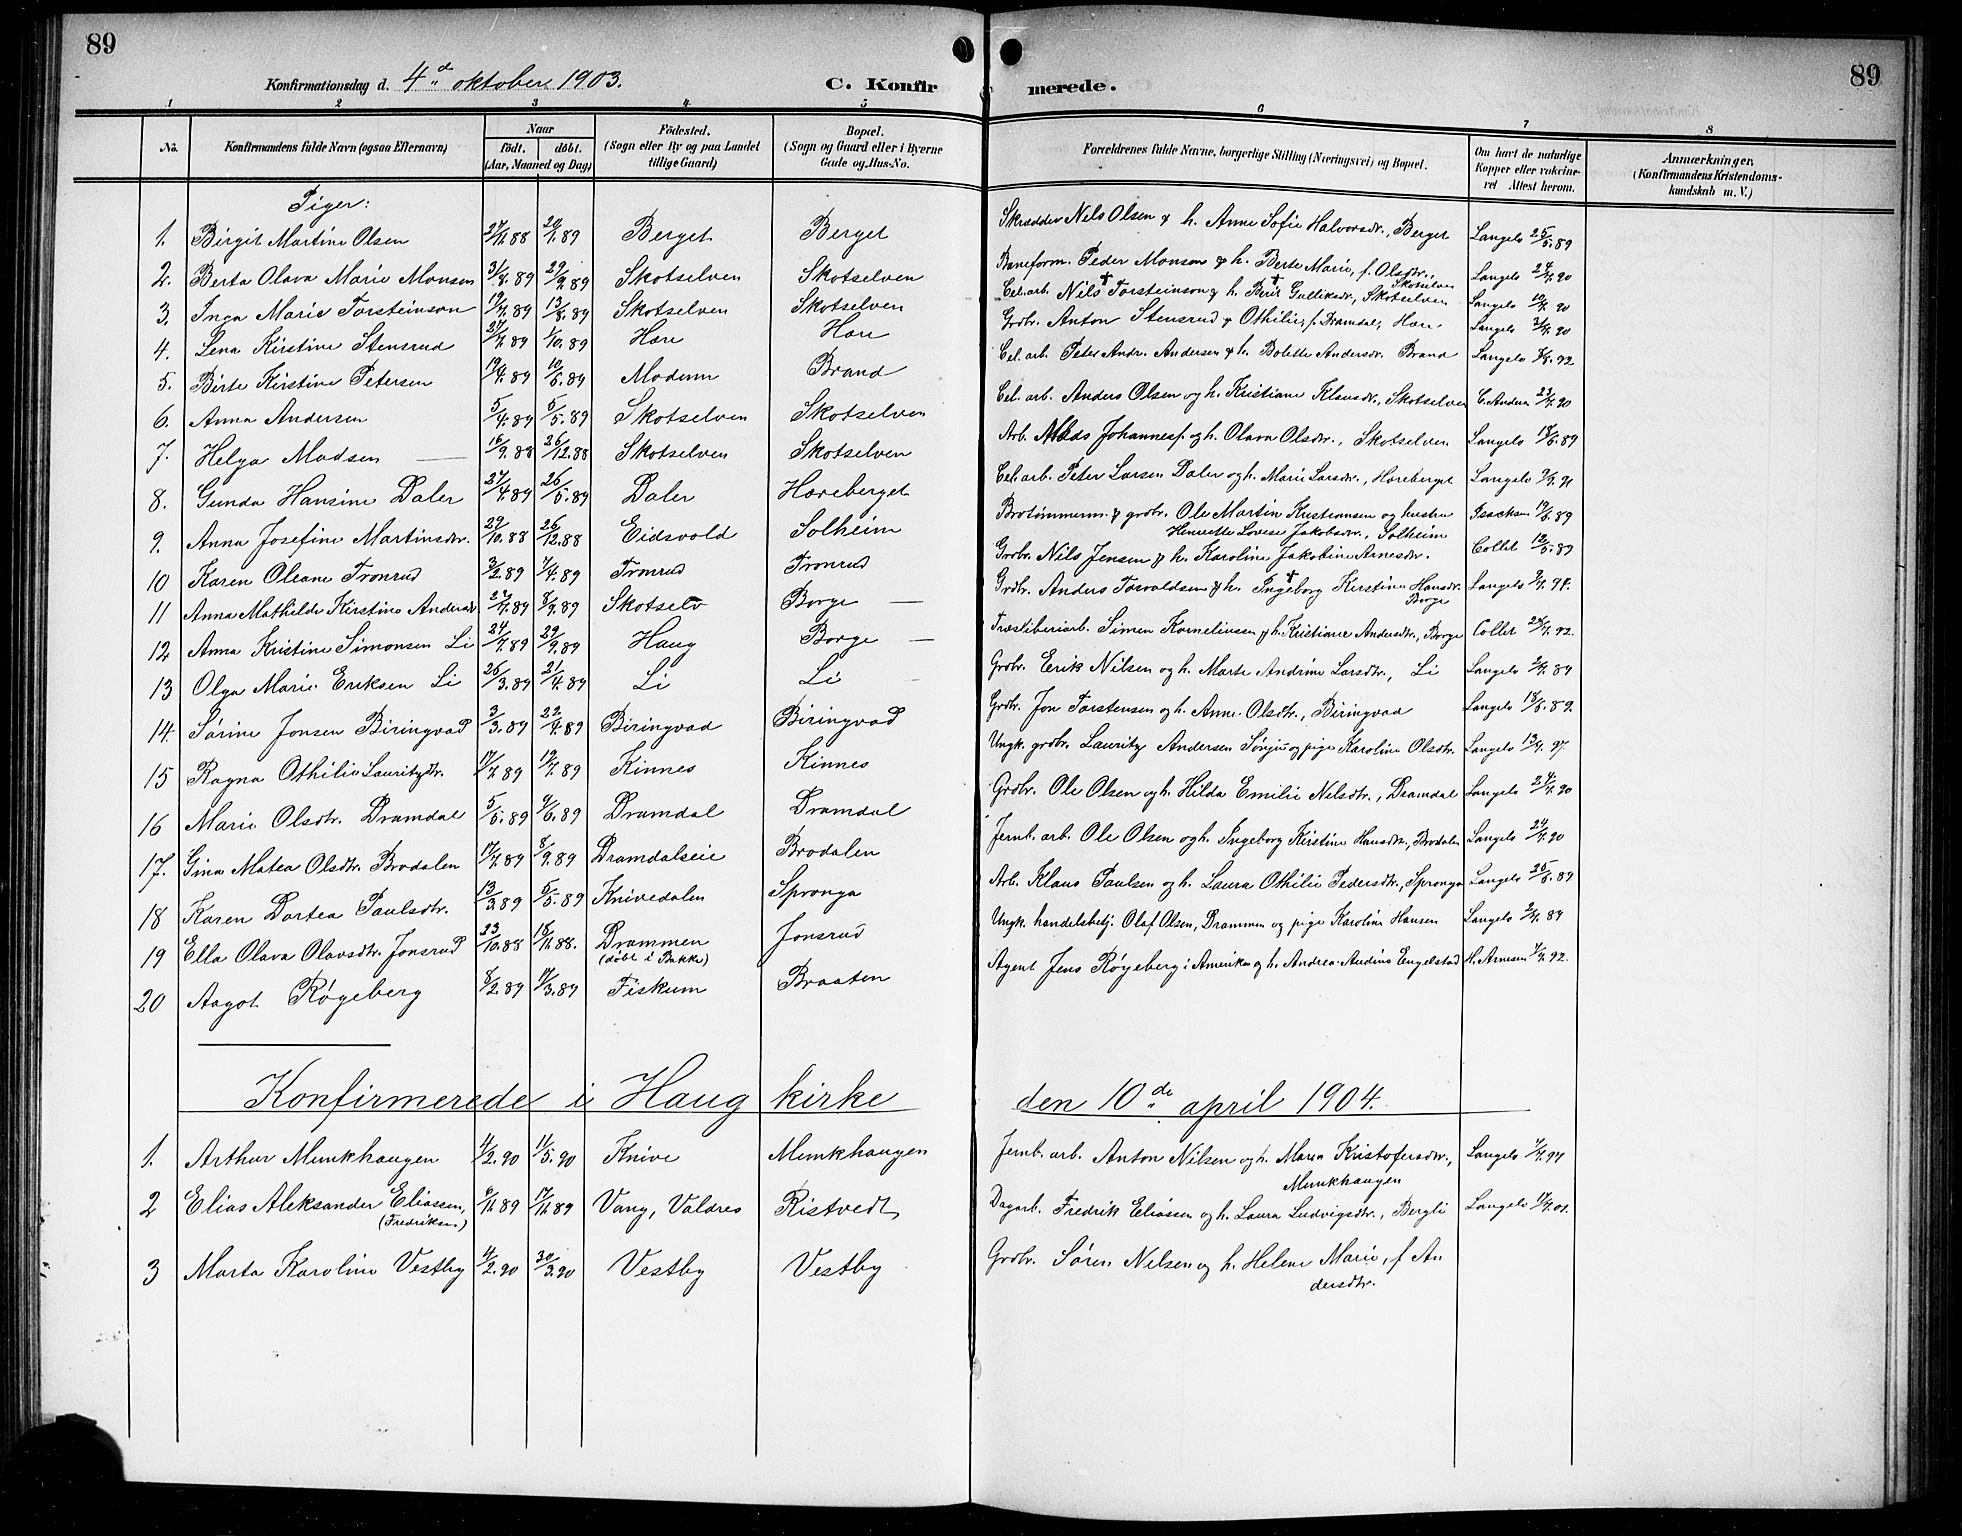 89
89
Konfirmationsdag d. 4de oktober 1903.
C. Konfir
merede.
1 2 3 4 5 6 7 8
No.
Konfirmandens fulde Navn (ogsaa Efternavn)
Naar
födt. döbt.
(Aar, Maaned og Dag)
Födested.
(Sogn eller By og paa Landet
tillige Gaard)
Bopæl.
(Sogn og Gaard eller i Byerne
Gade og Hus-No.
Forældrenes fulde Navne, borgerlige Stilling (Næringsvei) og Bopæl.
Om havt de naturlige
Kopper eller vakcine-
ret. Attest herom.
Anmærkninger.
(Konfirmandens Kristendoms-
kundskab m. V.)
Piger:
1. Birgit Martine Olsen 27/11.88 20/1.89 Berget Berget Skrædder Nils Olsen & h. Anne Sofie Halvorsdr., Berget Langelo 25/5.89
2. Berta Olava Marie Monsen 31/8.89 29/9.89 Skotselven Skotselven Baneform. Peder Monsen & h. Berte Marie, f. Olsdtr., Skotselven Langelo 24/4.90
3. Inga Marie Torsteinson 19/7.89 13/8.89 Skotselven Skotselven Cel. arb. Nils † Torsteinson & h. Berit † Gulliksdr., Skotselven Langelo 10/4.90
4. Lena Kirstine Stensrud 27/7.89 1/10.89 Hære Hære Grdbr. Anton Stensrud & Othilie, f. Dramdal, Hære Langelo 24/4.90
5. Birte Kirstine Petersen 19/4.89 10/5.89 Modum Brand Cel. arb. Peter Andr. Andersen & h. Bolette Andersdr. Brand Langelo 8/8.92
6. Anna Andersen 5/4.89 5/5.89 Skotselven Skotselven Cel. arb. Anders Olsen og h. Kristiane Klausdr., Skotselven C. Anders 23/4.90
7. Helga Madsen 16/9.88 26/12.88 Skotselven Skotselven Arb. Mads Johanness. og h. Olava Olsdtr., Skotselven Langelo 18/6.89
8. Gunda Hansine Daler 27/4.89 26/5.89 Daler Hæreberget Cel. arb. Peter Larsen Daler og h. Marie Larsdr., Hæreberget Langelo 7/9.91
9. Anna Josefine Martinsdtr. 29/10.88 26/12.88 Eidsvold Solheim Brotømmerm. & grdbr. Ole Martin Kristiansen og hustru
Henriette Lovise Jakobsdtr., Solheim Isachsen 19/6.89
10 Karen Oleane Tronrud 3/2.89 7/4.89 Tronrud Tronrud Grdbr. Nils Jensen & h. Karoline Jakobine Arnesdtr. Collet 12/5.89
11 Anna Mathilde Kirstine Andersdr. 24/7.89 8/9.89 Skotselv Borge Grdbr. Anders Torvaldsen & h. Ingeborg † Kirstine Hansdr. Borge Langelo 2/7.94.
12 Anna Kristine Simonsen Li 24/7.89 29/9.89 Haug Borge Træsliberiarb. Simen Kornelinssen & h. Kristiane Andersdtr., Borge Collet 28/7.92.
13 Olga Marie Eriksen Li 26/3.89 21/4.89 Li Li Grdbr. Erik Nilsen og h. Marte Andrine Larsdtr., Li Langelo 2/7.89
14. Sørine Jonsen Biringvad 3/3.89 22/4.89 Biringvad Biringvad Grdbr. Jon Torstensen og h. Anne Olsdtr., Biringvad Langelo 18/6.89.
15 Ragna Othilie Lauritzdtr. 17/7.89 19/7.89 Kinnes Kinnes Ungk. grdbr. Lauritz Andersen og pige Karoline Olsdtr. Langelo 13/9.97.
16 Marie Olsdtr. Dramdal 5/5.89 9/6.89 Dramdal Dramdal Grdbr. Ole Olsen og h. Hilda Emilie Nilsdtr., Dramdal Langelo 24/4.90
17. Gina Matea Olsdtr. Brodalen 17/7.89 8/9.89 Dramdalseie Brodalen Jernb. arb. Ole Olsen og h. Ingeborg Kirstine Hansdtr., Brodalen Langelo 24/4.90
18 Karen Dortea Paulsdtr. 13/3.89 5/5.89 Knivedalen Spronga Arb. Klaus Paulsen og h. Laura Othilie Pedersdtr., Spronga Langelo 25/8.89
19 Ella Olava Olavsdtr. Jonsrud 23/10.88 18/11.88. Drammen
(døbt i Bakke) Jonsrud Ungk. handelsbetj. Olaf Olsen, Drammen og pige Karoline Hansen Langelo 2/7.89
20 Aagot Røgeberg 8/2.89 17/3.89 Fiskum Braaten Agent Jens Røgeberg i Amerika og h. Andrea Andine Engelstad H. Arnesen 1/7.92.
Konfirmerede i Haug kirke den 10de april 1904.
1. Arthur Munkhaugen 4/2.90 11/5.90 Knive Munkhaugen Jernb. arb. Anton Nilsen og h. Maren Kristofersdtr.,
Munkhaugen Langelo 1/7.94
2 Elias Aleksander Eliassen,
(Fredriksen.) 6/11.89 17/11.89 Vang, Valdres Ristvedt Dagarb. Fredrik Eliassen og h. Laura Ludvigsdtr., Bergli Langelo 11/7.01.
3 Marta Karoline Vestby 4/2.90 30/3.90 Vestby Vestby Grdbr. Søren Nilsen og h. Helene Marie, f. An
dersdtr.